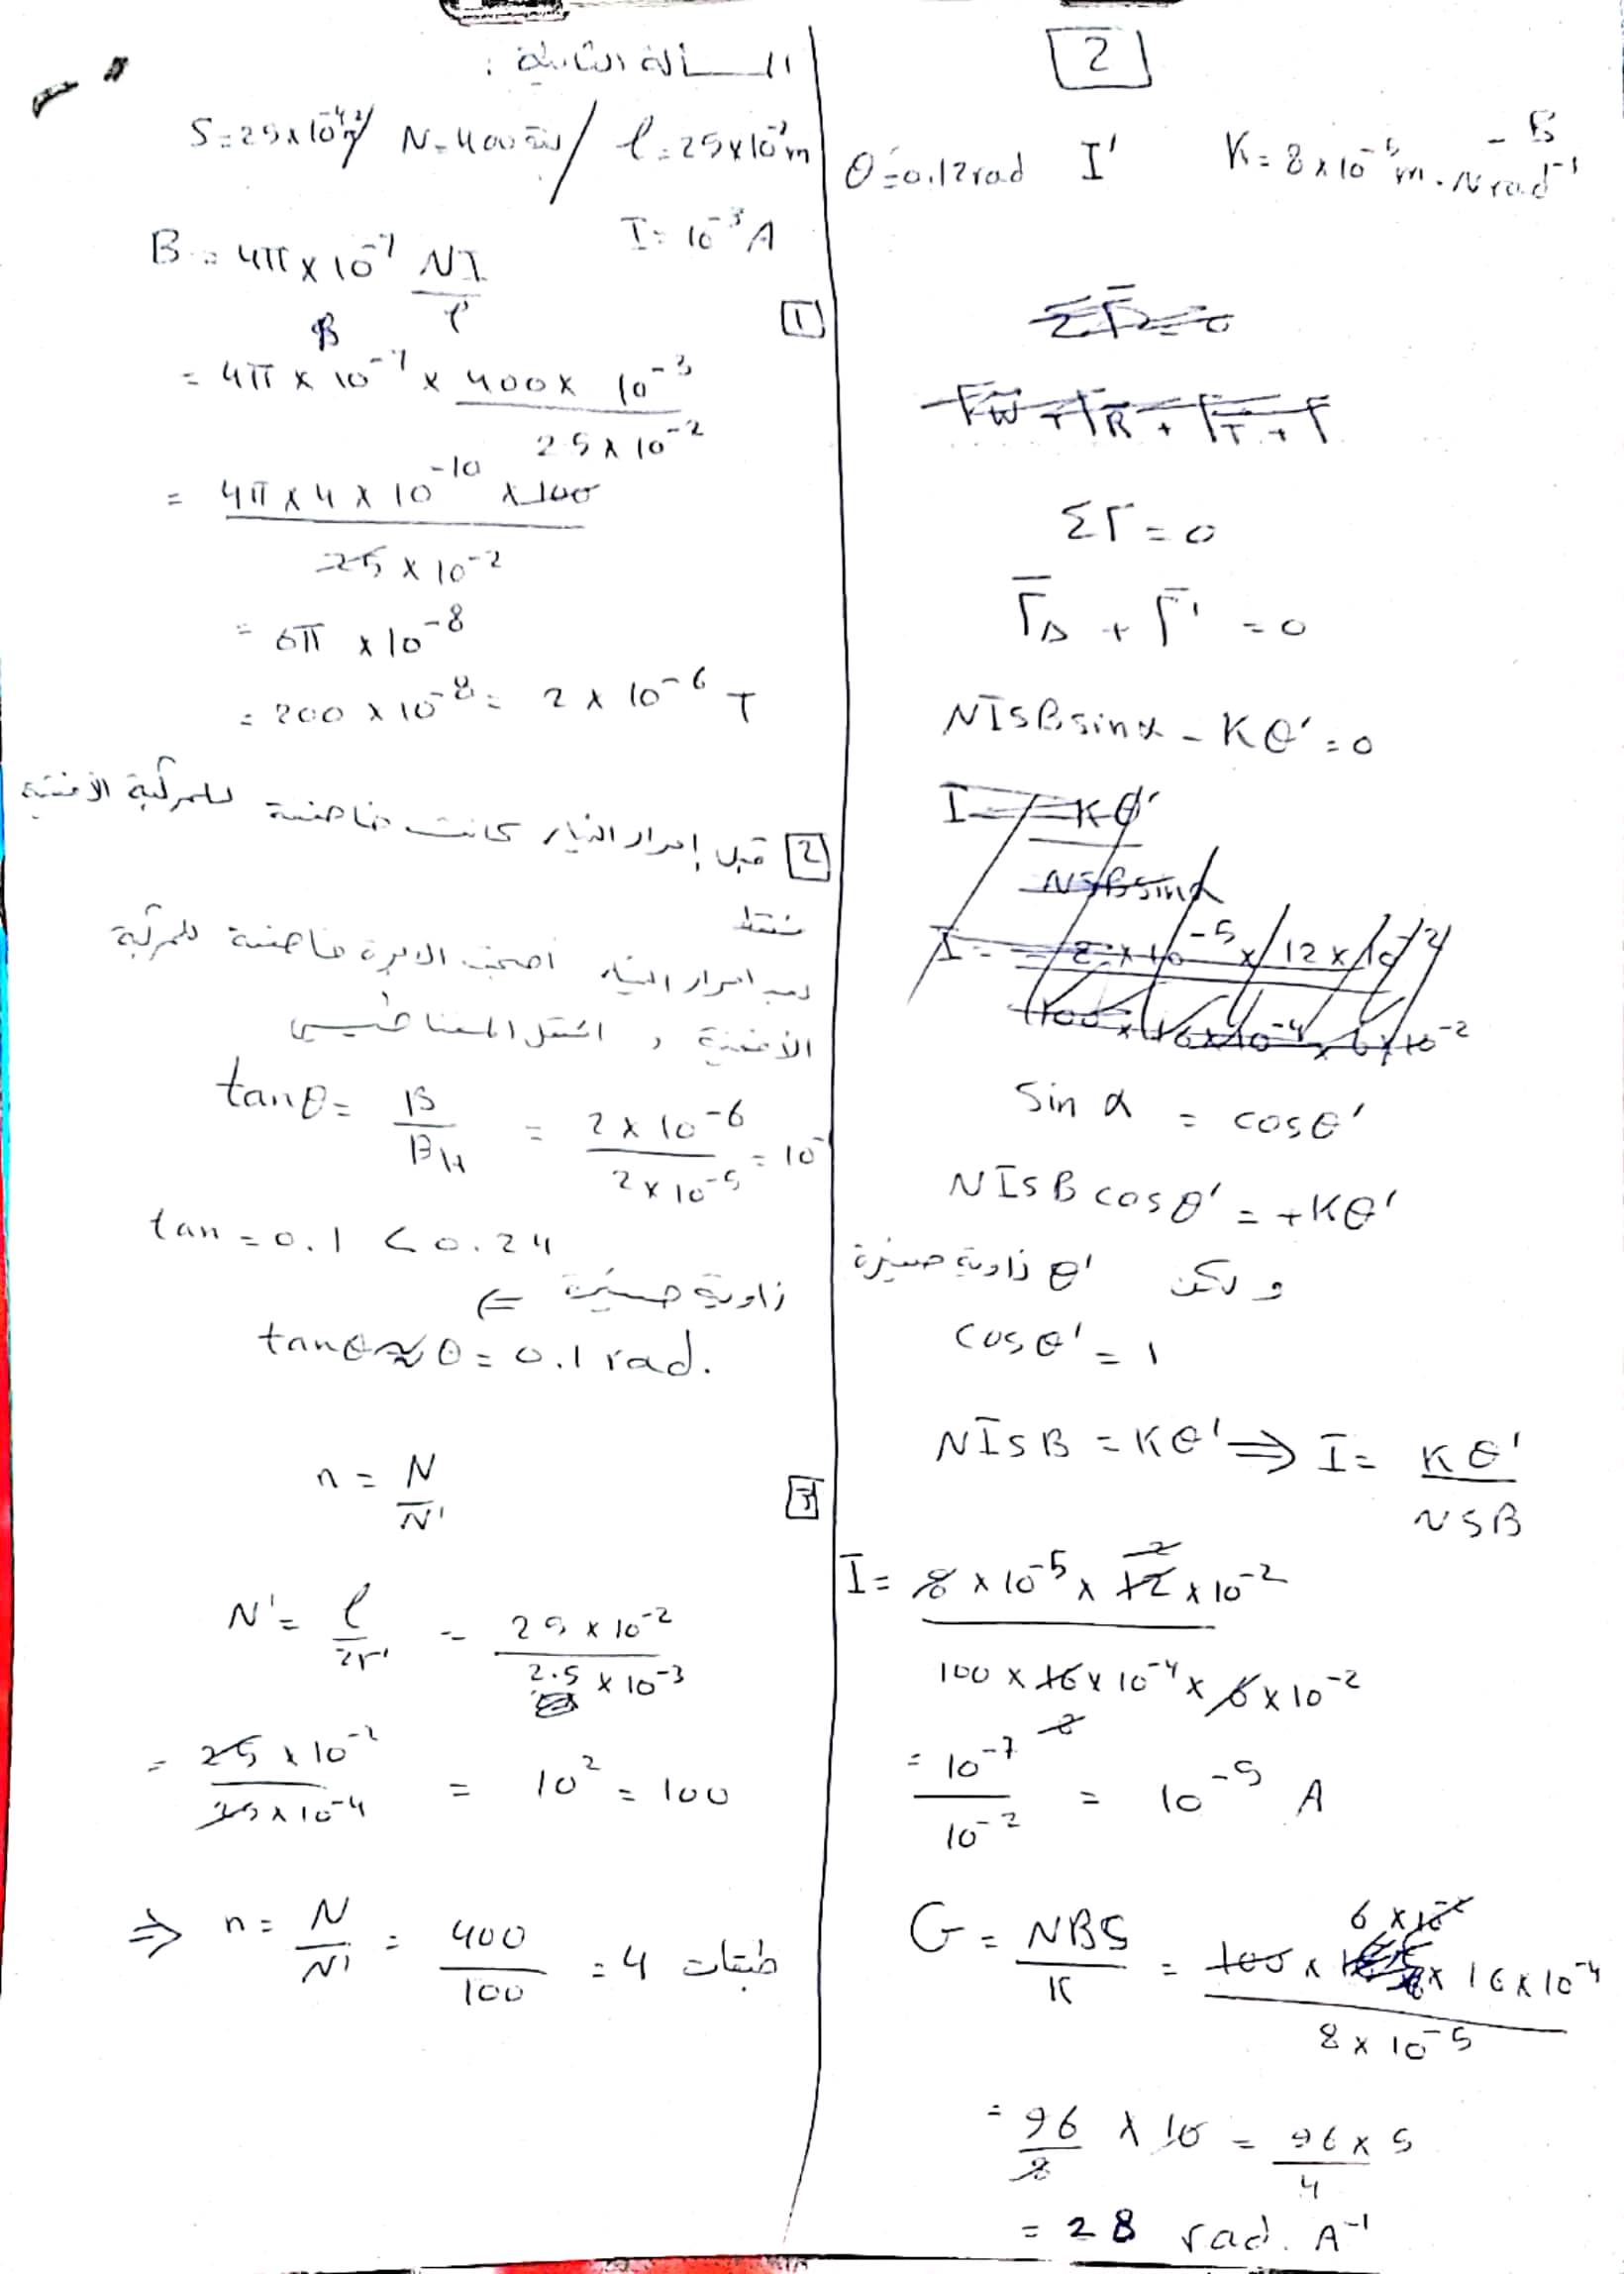 المسألة الثانية :
S = 25 x 10^-4 m^2 / N = 400 لفة / l = 25 x 10^-2 m
I = 10^-3 A
[1]
B = 4π x 10^-7 NI / l
B = 4π x 10^-7 x 400 x 10^-3 / 25 x 10^-2
= 4π x 4 x 10^-10 x 100 / 25 x 10^-2
= 6π x 10^-8
= 200 x 10^-8 = 2 x 10^-6 T
[2] قبل إمرار التيار كانت خاضعة للمركبة الأفقية
فقط
بعد امرار التيار أصبحت الابرة خاضعة للمركبة
الأفقية و الحقل المغناطيسي
tanθ = B / B_H = 2 x 10^-6 / 2 x 10^-5 = 10^-1
tan = 0.1 < 0.24
زاوية صغيرة ⇐
tanθ ≈ θ = 0.1 rad.
[3]
n = N / N'
N' = l / 2r' = 25 x 10^-2 / 2.5 x 10^-3
= 25 x 10^-2 / 25 x 10^-4 = 10^2 = 100
⇒ n = N / N' = 400 / 100 = 4 طبقات
[2]
θ' = 0.12 rad I' K = 8 x 10^-5 m.N rad^-1
ΣΓ = 0
Γ_Δ + Γ' = 0
NISB sinα - Kθ' = 0
I = Kθ' / NSB sinα
I = 8 x 10^-5 x 12 x 10^-2 / 100 x 16 x 10^-4 x 6 x 10^-2
Sin α = cosθ'
NISB cosθ' = +Kθ'
ولكن θ' زاوية صغيرة
cosθ' = 1
NISB = Kθ' ⇒ I = Kθ' / NSB
I = 8 x 10^-5 x 12 x 10^-2 / 100 x 16 x 10^-4 x 6 x 10^-2
= 10^-7 / 10^-2 = 10^-5 A
G = NBS / K = 100 x 6 x 10^-2 x 16 x 10^-4 / 8 x 10^-5
= 96 / 8 x 10 = 96 x 5 / 4
= 28 rad. A^-1